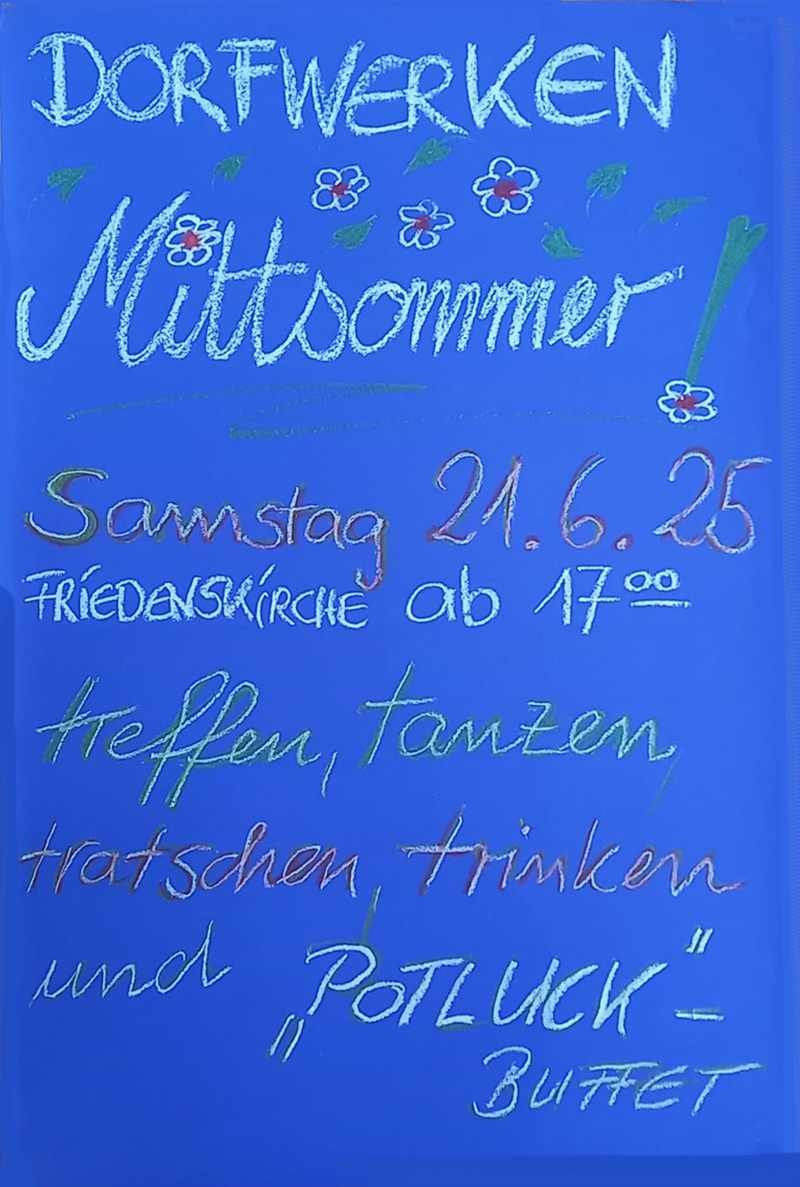 DORFWERKEN
Mittsommer!
Samstag 21.6.25
FRIEDENSKIRCHE ab 17⁰⁰
treffen, tanzen,
tratschen, trinken
und „POTLUCK"-
BUFFET